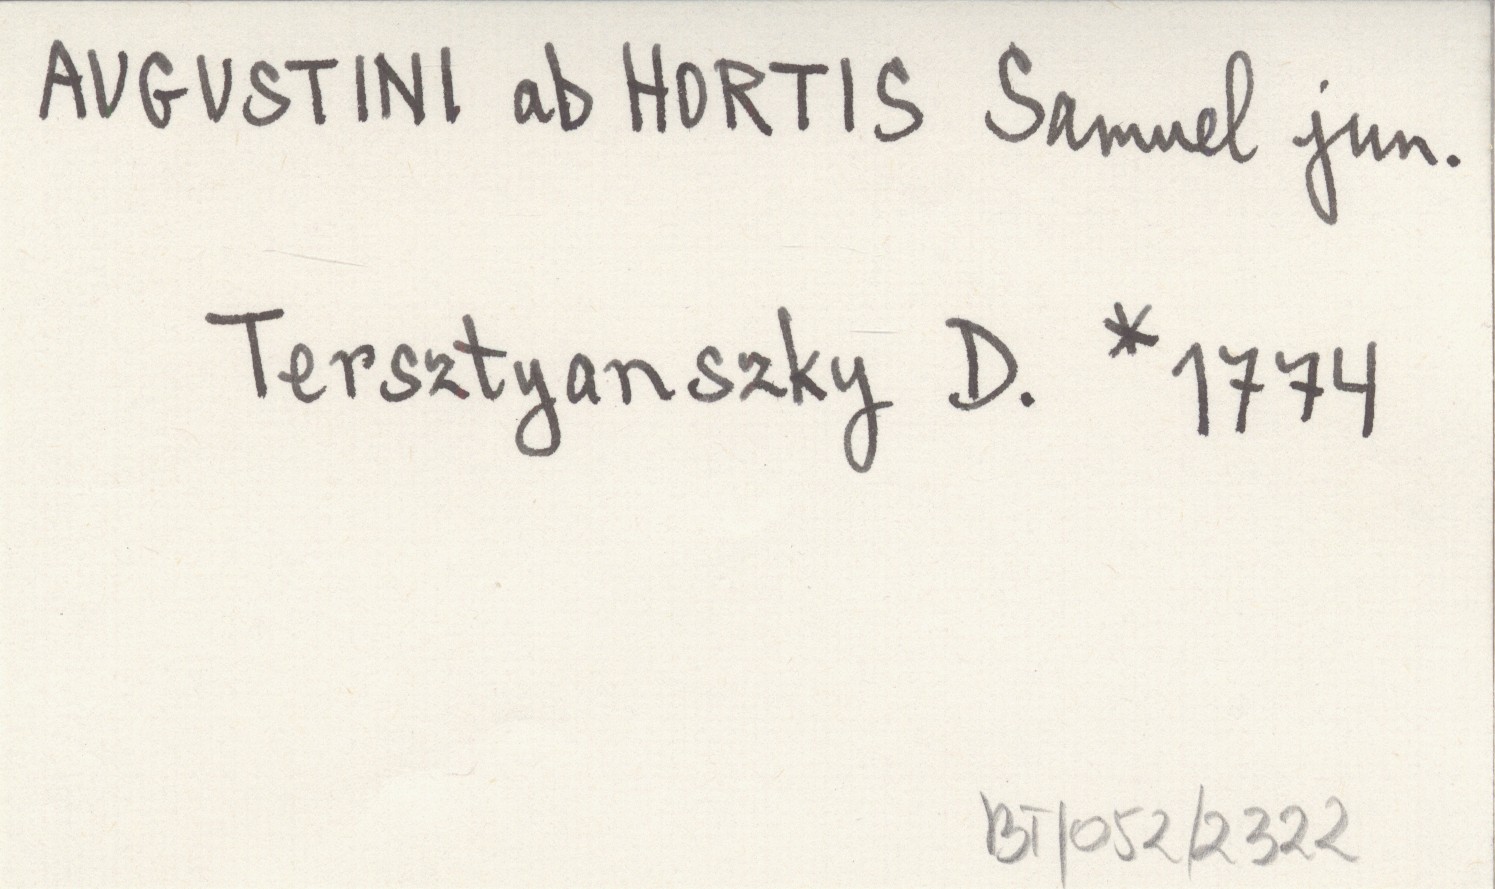 AUGUSTINI ab HORTIS Samuel jun.
Tersztyanszky D. *1774
BT/052/2322